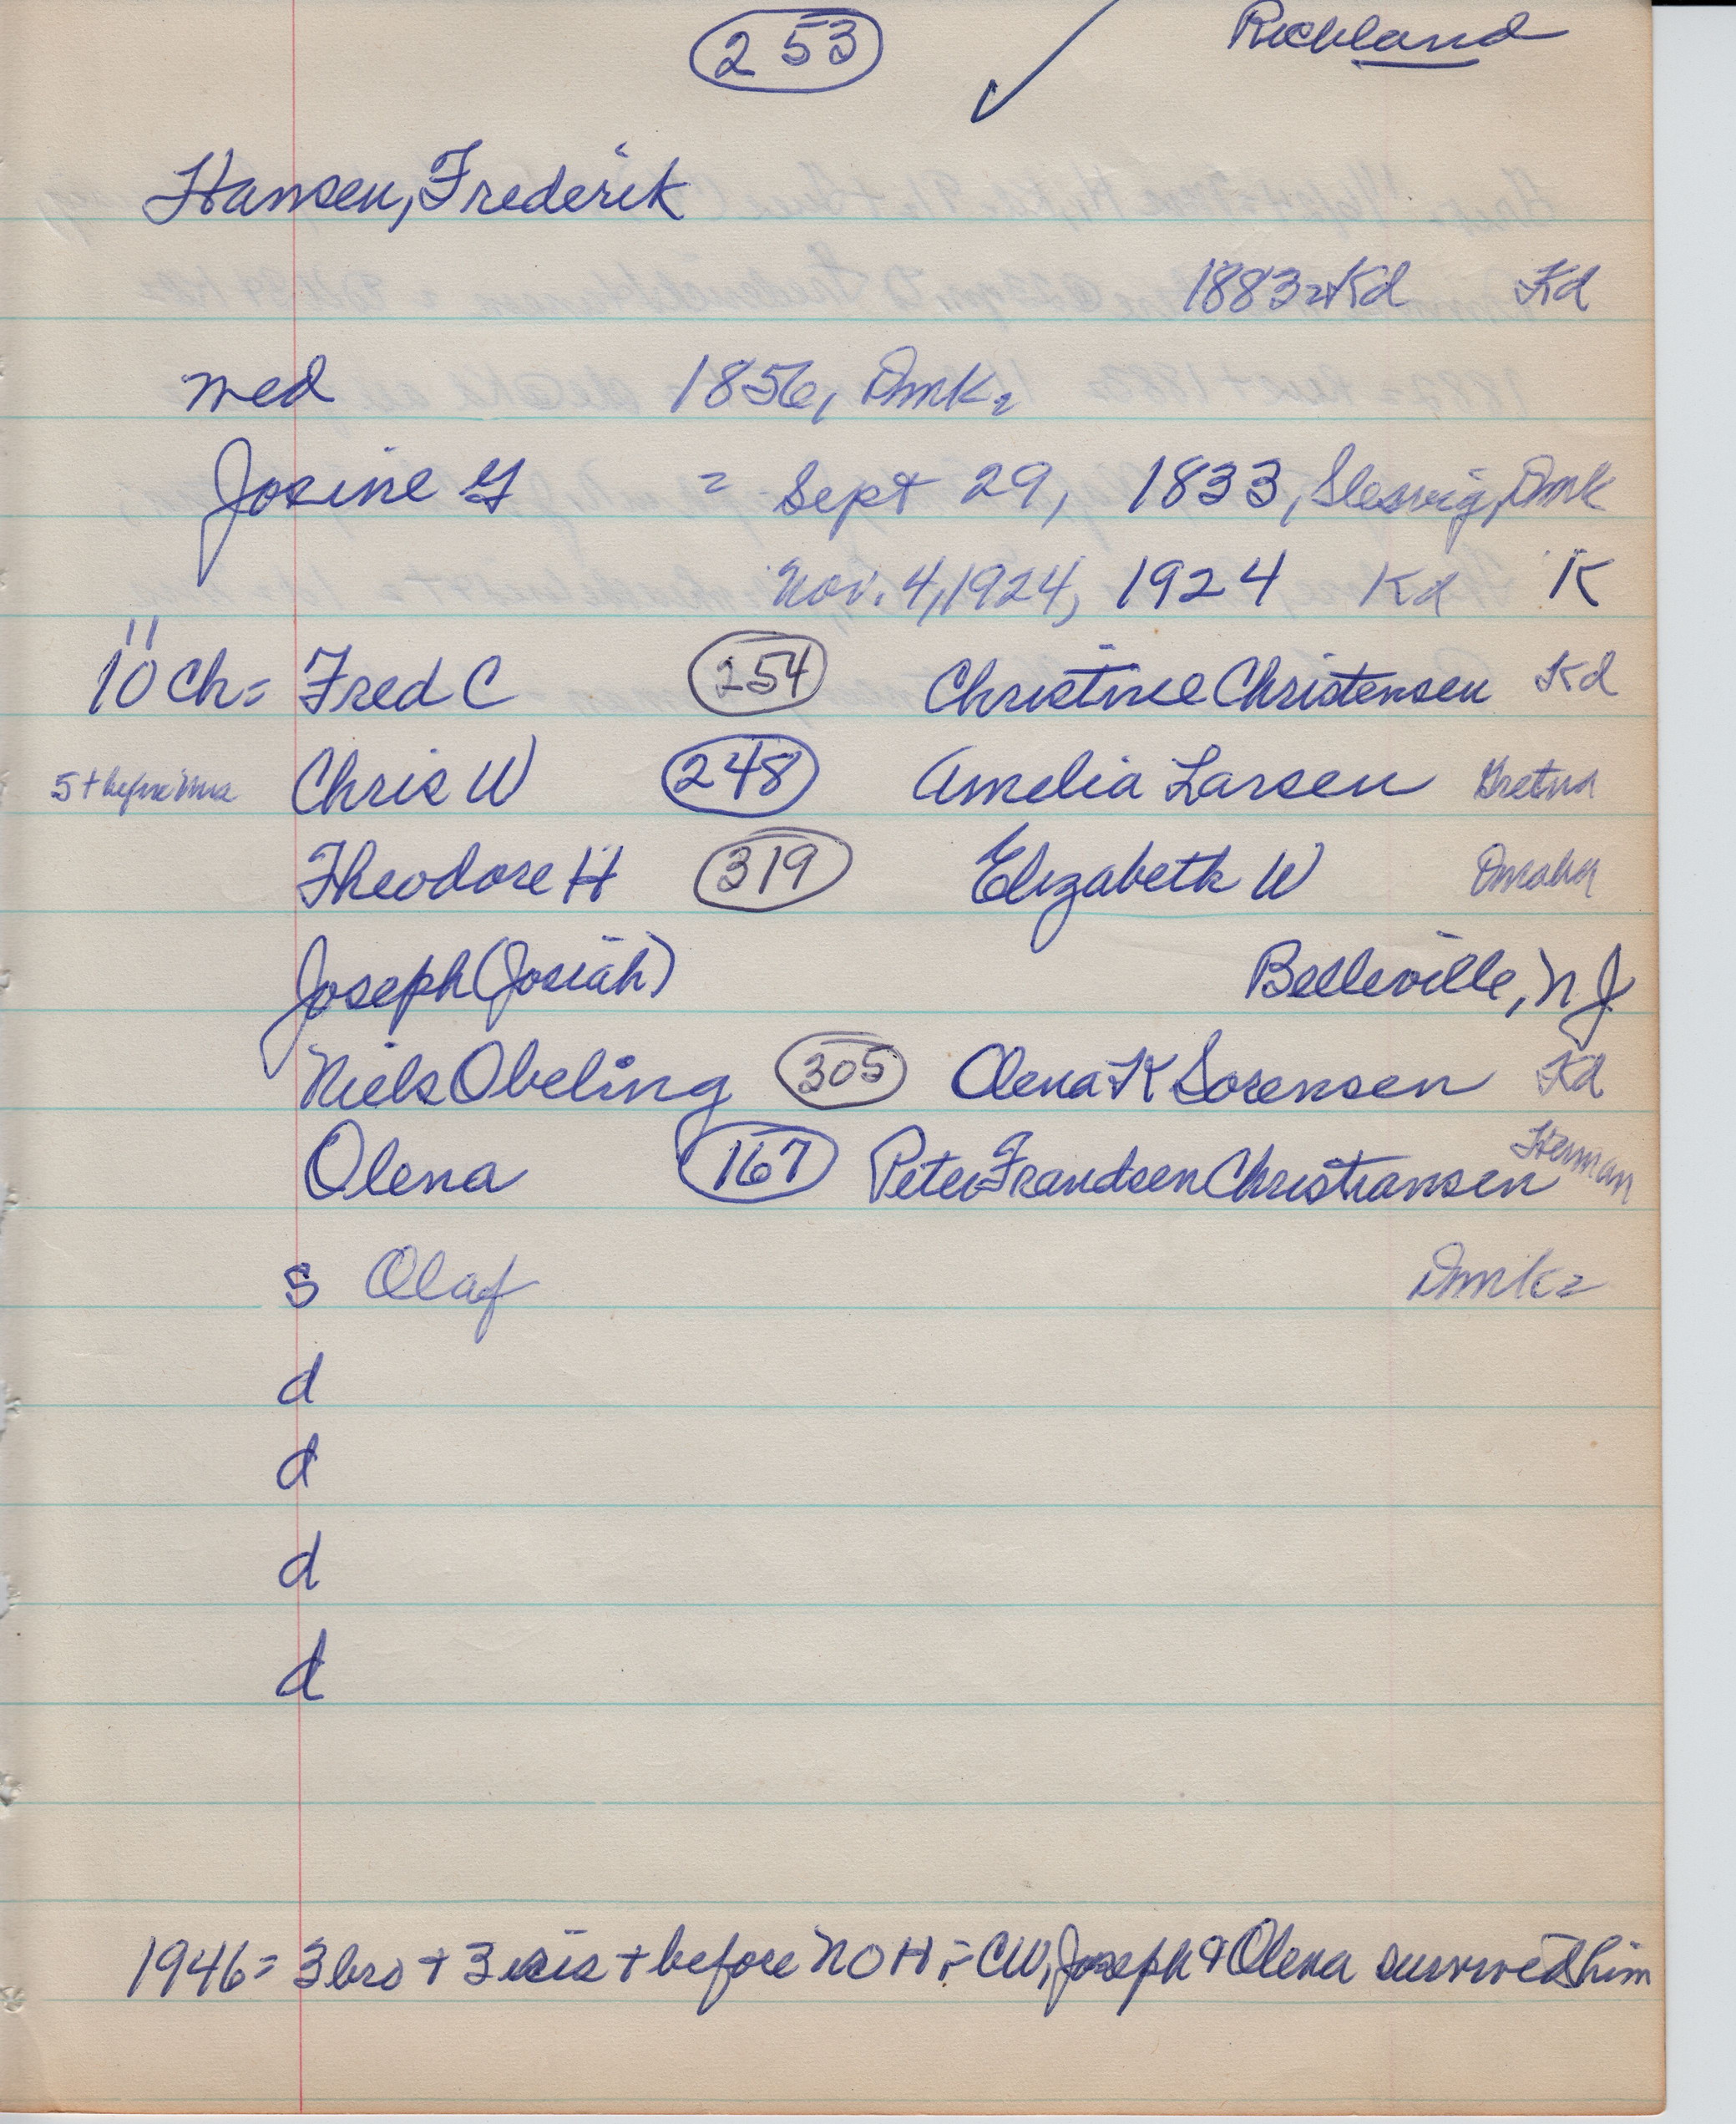 253 ✓ Richland
Hansen, Frederik
1883=Kd Kd
med 1856, Dmk=
Josine G = Sept 29, 1833, Slesvig, Dmk
Nov. 4, 1924, 1924 Kd K
11
10 Ch= Fred C 254 Christine Christensen Kd
5 + before Chris W 248 Amelia Larsen Gretna
Theodore H 319 Elizabeth W Omaha
Joseph (Josiah) Belleville, NJ
Niels Obeling 305 Olena K Sorensen Kd
Olena 167 Peter Frandsen Christiansen Herman
s Olaf Dmk=
d
d
d
d
1946= 3 bro + 3 sis + before NOH ÷ CW, Joseph & Olena survived him